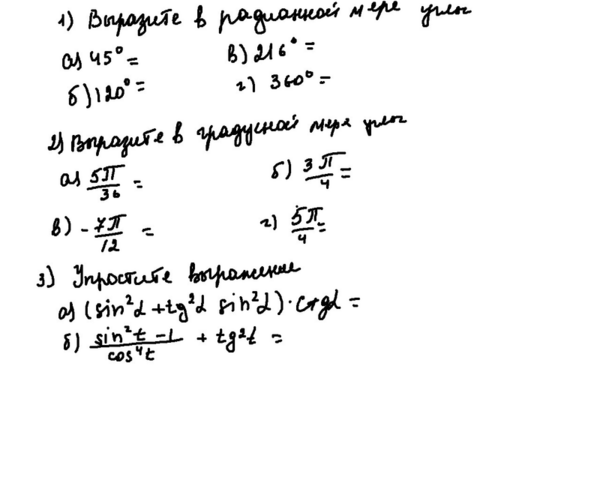 1) Выразите в радианной мере углы
а) 45° = в) 216° =
б) 120° = г) 360° =
2) Выразите в градусной мере углы
а) 5π/36 = б) 3π/4 =
в) -7π/12 = г) 5π/4 =
3) Упростите выражение
а) (sin²α + tg²α sin²α) · ctgα =
б) sin²t - 1/cos⁴t + tg²t =